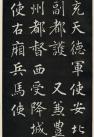 充天德軍使安北
副都護又爲豐
州都督西受降城
使右廂兵馬使